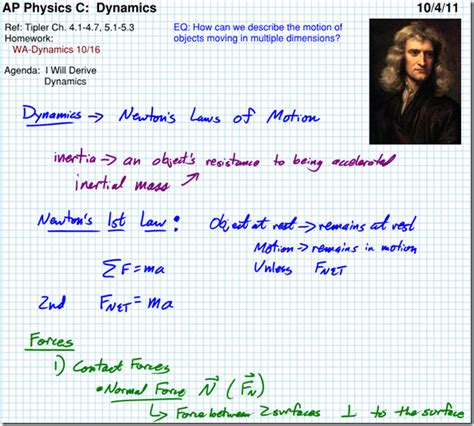 AP Physics C: Dynamics 10/4/11
Ref: Tipler Ch. 4.1-4.7, 5.1-5.3
Homework:
WA-Dynamics 10/16
EQ: How can we describe the motion of
objects moving in multiple dimensions?
Agenda: I Will Derive
Dynamics
Dynamics → Newton's Laws of Motion
inertia → an object's resistance to being accelerated
inertial mass
Newton's 1st Law: Object at rest → remains at rest
Motion → remains in motion
Unless F_NET
ΣF=ma
2nd F_NET = ma
Forces
1) Contact Forces
• Normal Force N⃗ (F⃗_N)
↳ Force between 2 surfaces ⊥ to the surface